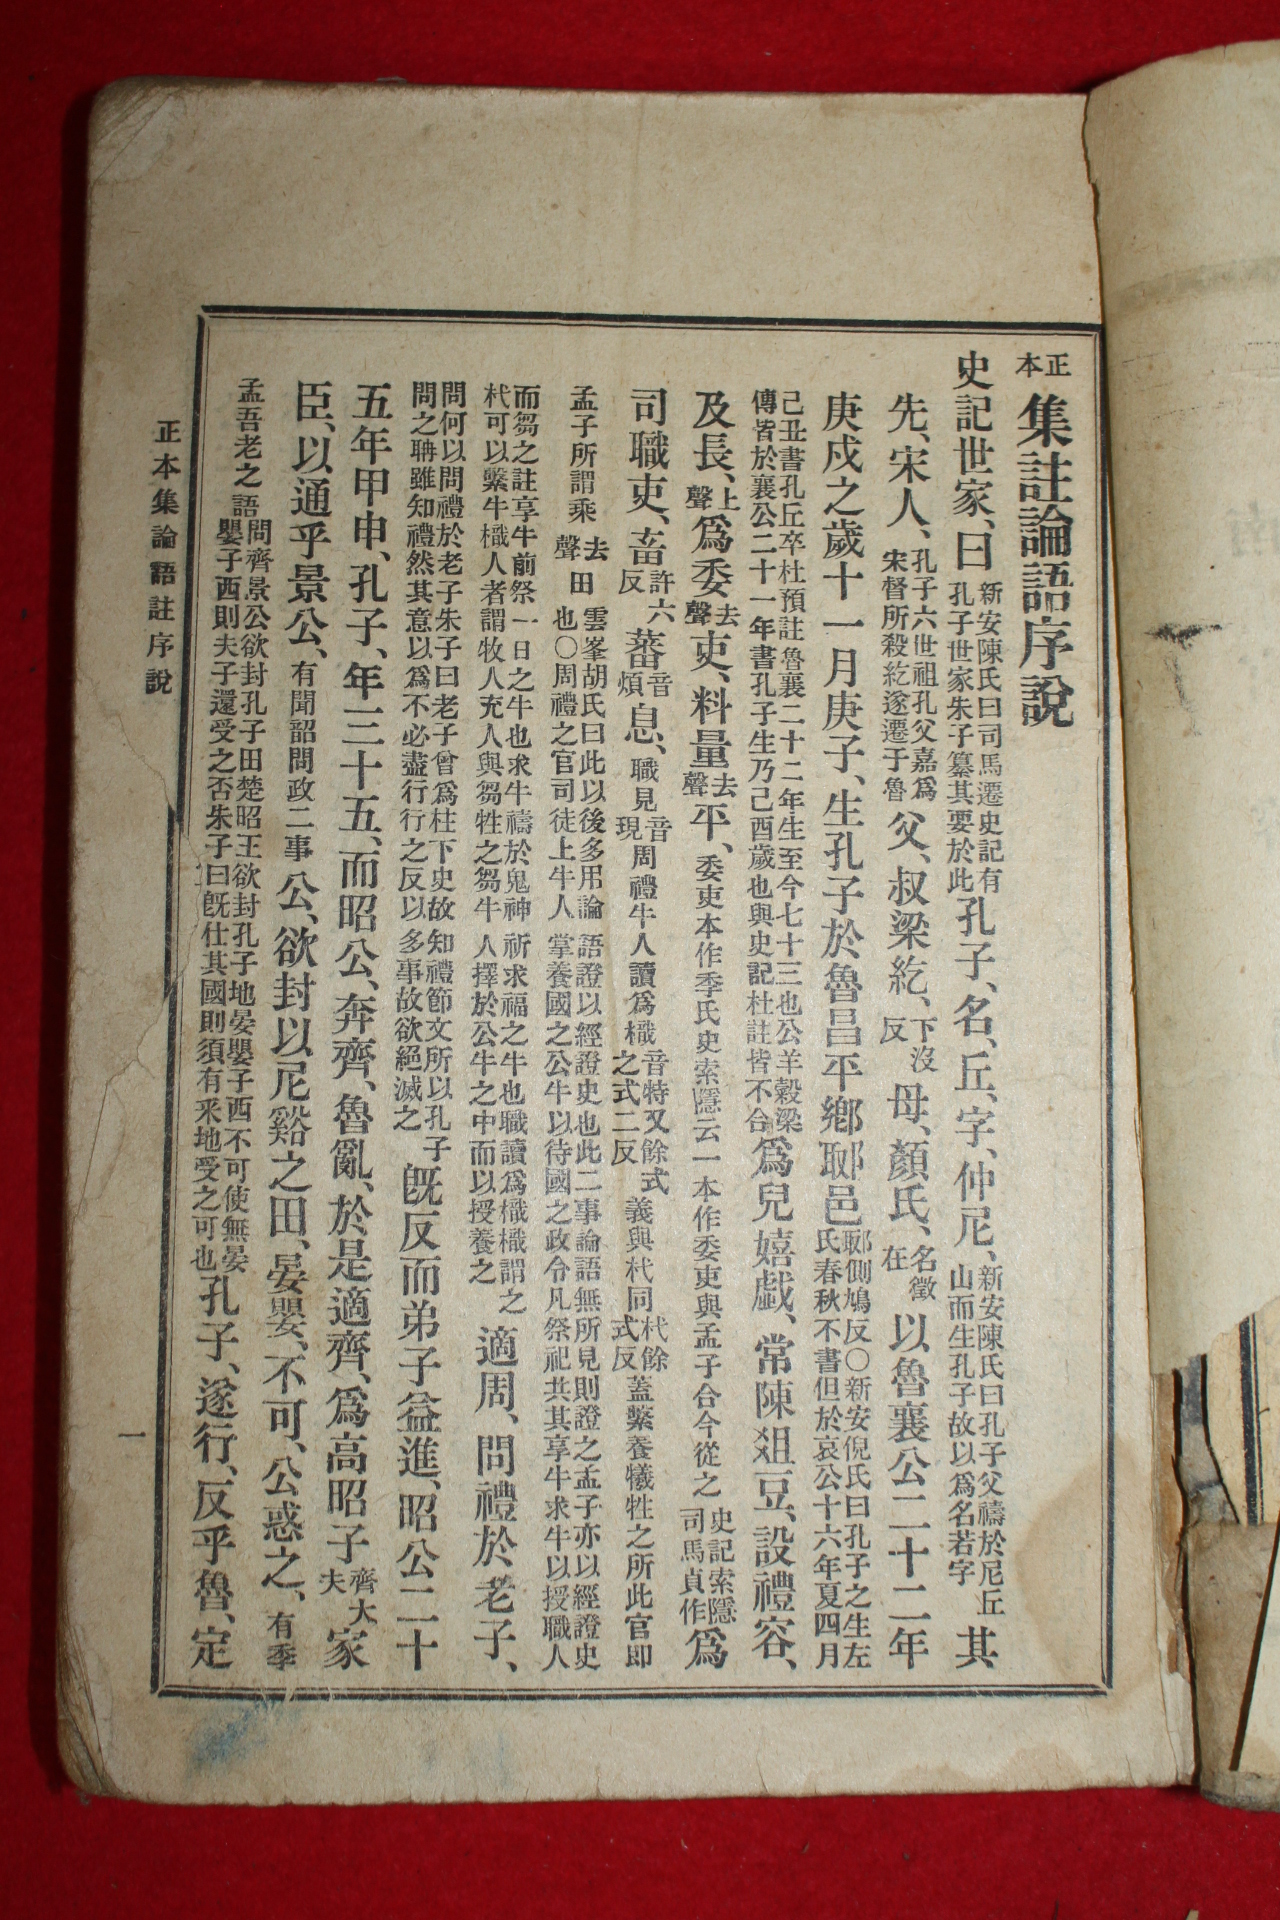 正本集註論語序說
史記世家、曰新安陳氏曰司馬遷史記有孔子世家朱子纂其要於此孔子、名、丘、字、仲尼、新安陳氏曰孔子父禱於尼丘山而生孔子故以爲名若字其
先、宋人、孔子六世祖孔父嘉爲宋督所殺紇遂遷于魯父、叔梁紇、下沒反母、顏氏、名徵在以魯襄公二十二年
庚戌之歲十一月庚子、生孔子於魯昌平鄉郰邑郰側鳩反〇新安倪氏曰孔子之生左氏春秋不書但於哀公十六年夏四月
己丑書孔丘卒杜預註魯襄二十二年生至今七十三也公羊穀梁傳皆於襄公二十一年書孔子生乃己酉歲也與史記杜註皆不合爲兒嬉戲、常陳俎豆、設禮容、
及長、上聲爲委去聲吏、料量去聲平、委吏本作季氏史索隱云一本作委吏與孟子合今從之史記索隱司馬貞作爲
司職吏、畜許六反蕃音煩息、職見音現周禮牛人讀爲樴音特又餘式之式二反義與杙同杙餘式反蓋繫養犧牲之所此官即
孟子所謂乘去聲田雲峯胡氏曰此以後多用論語證以經證史也此二事論語無所見則證之孟子亦以經證史也〇周禮之官司徒上牛人掌養國之公牛以待國之政令凡祭祀共其享牛求牛以授職人
而芻之註享牛前祭一日之牛也求牛禱於鬼神祈求福之牛也職讀爲樴樴謂之杙可以繫牛樴人者謂牧人充人與芻牲之芻牛人擇於公牛之中而以授養之適周、問禮於老子、
問何以問禮於老子朱子曰老子曾爲柱下史故知禮節文所以孔子問之聃雖知禮然其意以爲不必盡行行之反以多事故欲絕滅之旣反而弟子益進、昭公二十
五年甲申、孔子、年三十五、而昭公、奔齊、魯亂、於是適齊、爲高昭子齊大夫家
臣、以通乎景公、有聞韶問政二事公、欲封以尼谿之田、晏嬰、不可、公惑之、有季
孟吾老之語問齊景公欲封孔子田楚昭王欲封孔子地晏嬰子西不可使無晏嬰子西則夫子還受之否朱子曰旣仕其國則須有采地受之可也孔子、遂行、反乎魯、定
正本集論語註序說
一